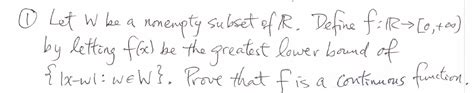 ① Let W be a nonempty subset of ℝ. Define f: ℝ→[0,+∞)
by letting f(x) be the greatest lower bound of
{|x-w| : w∈W}. Prove that f is a continuous function.